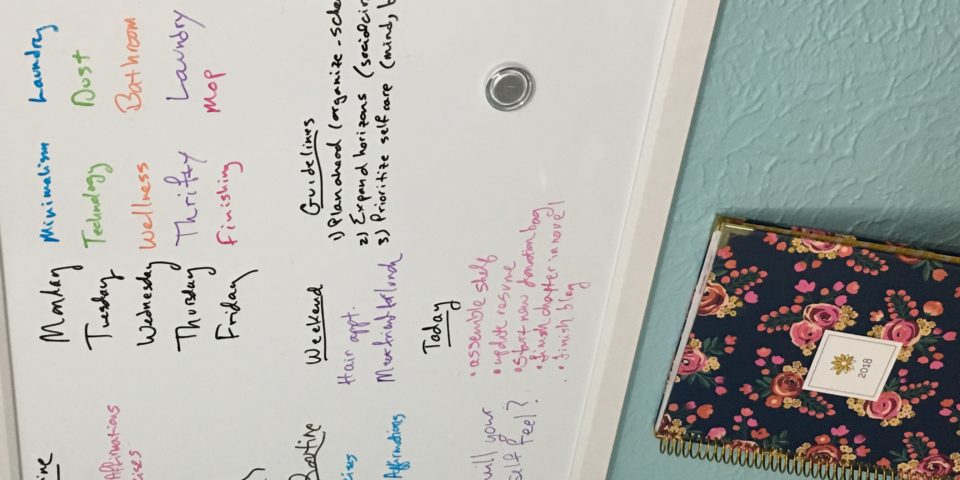 Monday Minimalism Laundry
Tuesday Technology Dust
Wednesday Wellness Bathroom
Thursday Thrifty Laundry
Friday Finishing Mop
Weekend
Hair appt.
Meet friend for lunch
Guidelines
1) Plan ahead (organize - sche
2) Expand horizons (social cir
3) Prioritize self care (mind, b
Today
• assemble shelf
• update resume
• start new donation bag
• finish chapter in novel
• finish blog
ine
Affirmations
ises
Routine
ises
Affirmations
will your
self feel?
2018